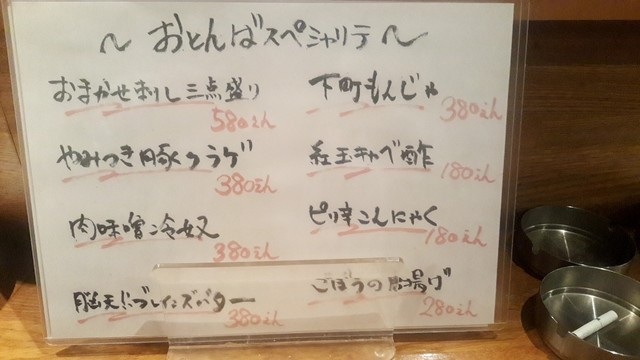 ～ おとんばスペシャリテ ～
おまかせ刺し三点盛り
580えん
やみつき豚クラゲ
380えん
肉味噌冷奴
380えん
380えん
下町もんじゃ
380えん
紅玉キャベ酢
180えん
ピリ辛こんにゃく
180えん
ごぼうの 揚げ
280えん